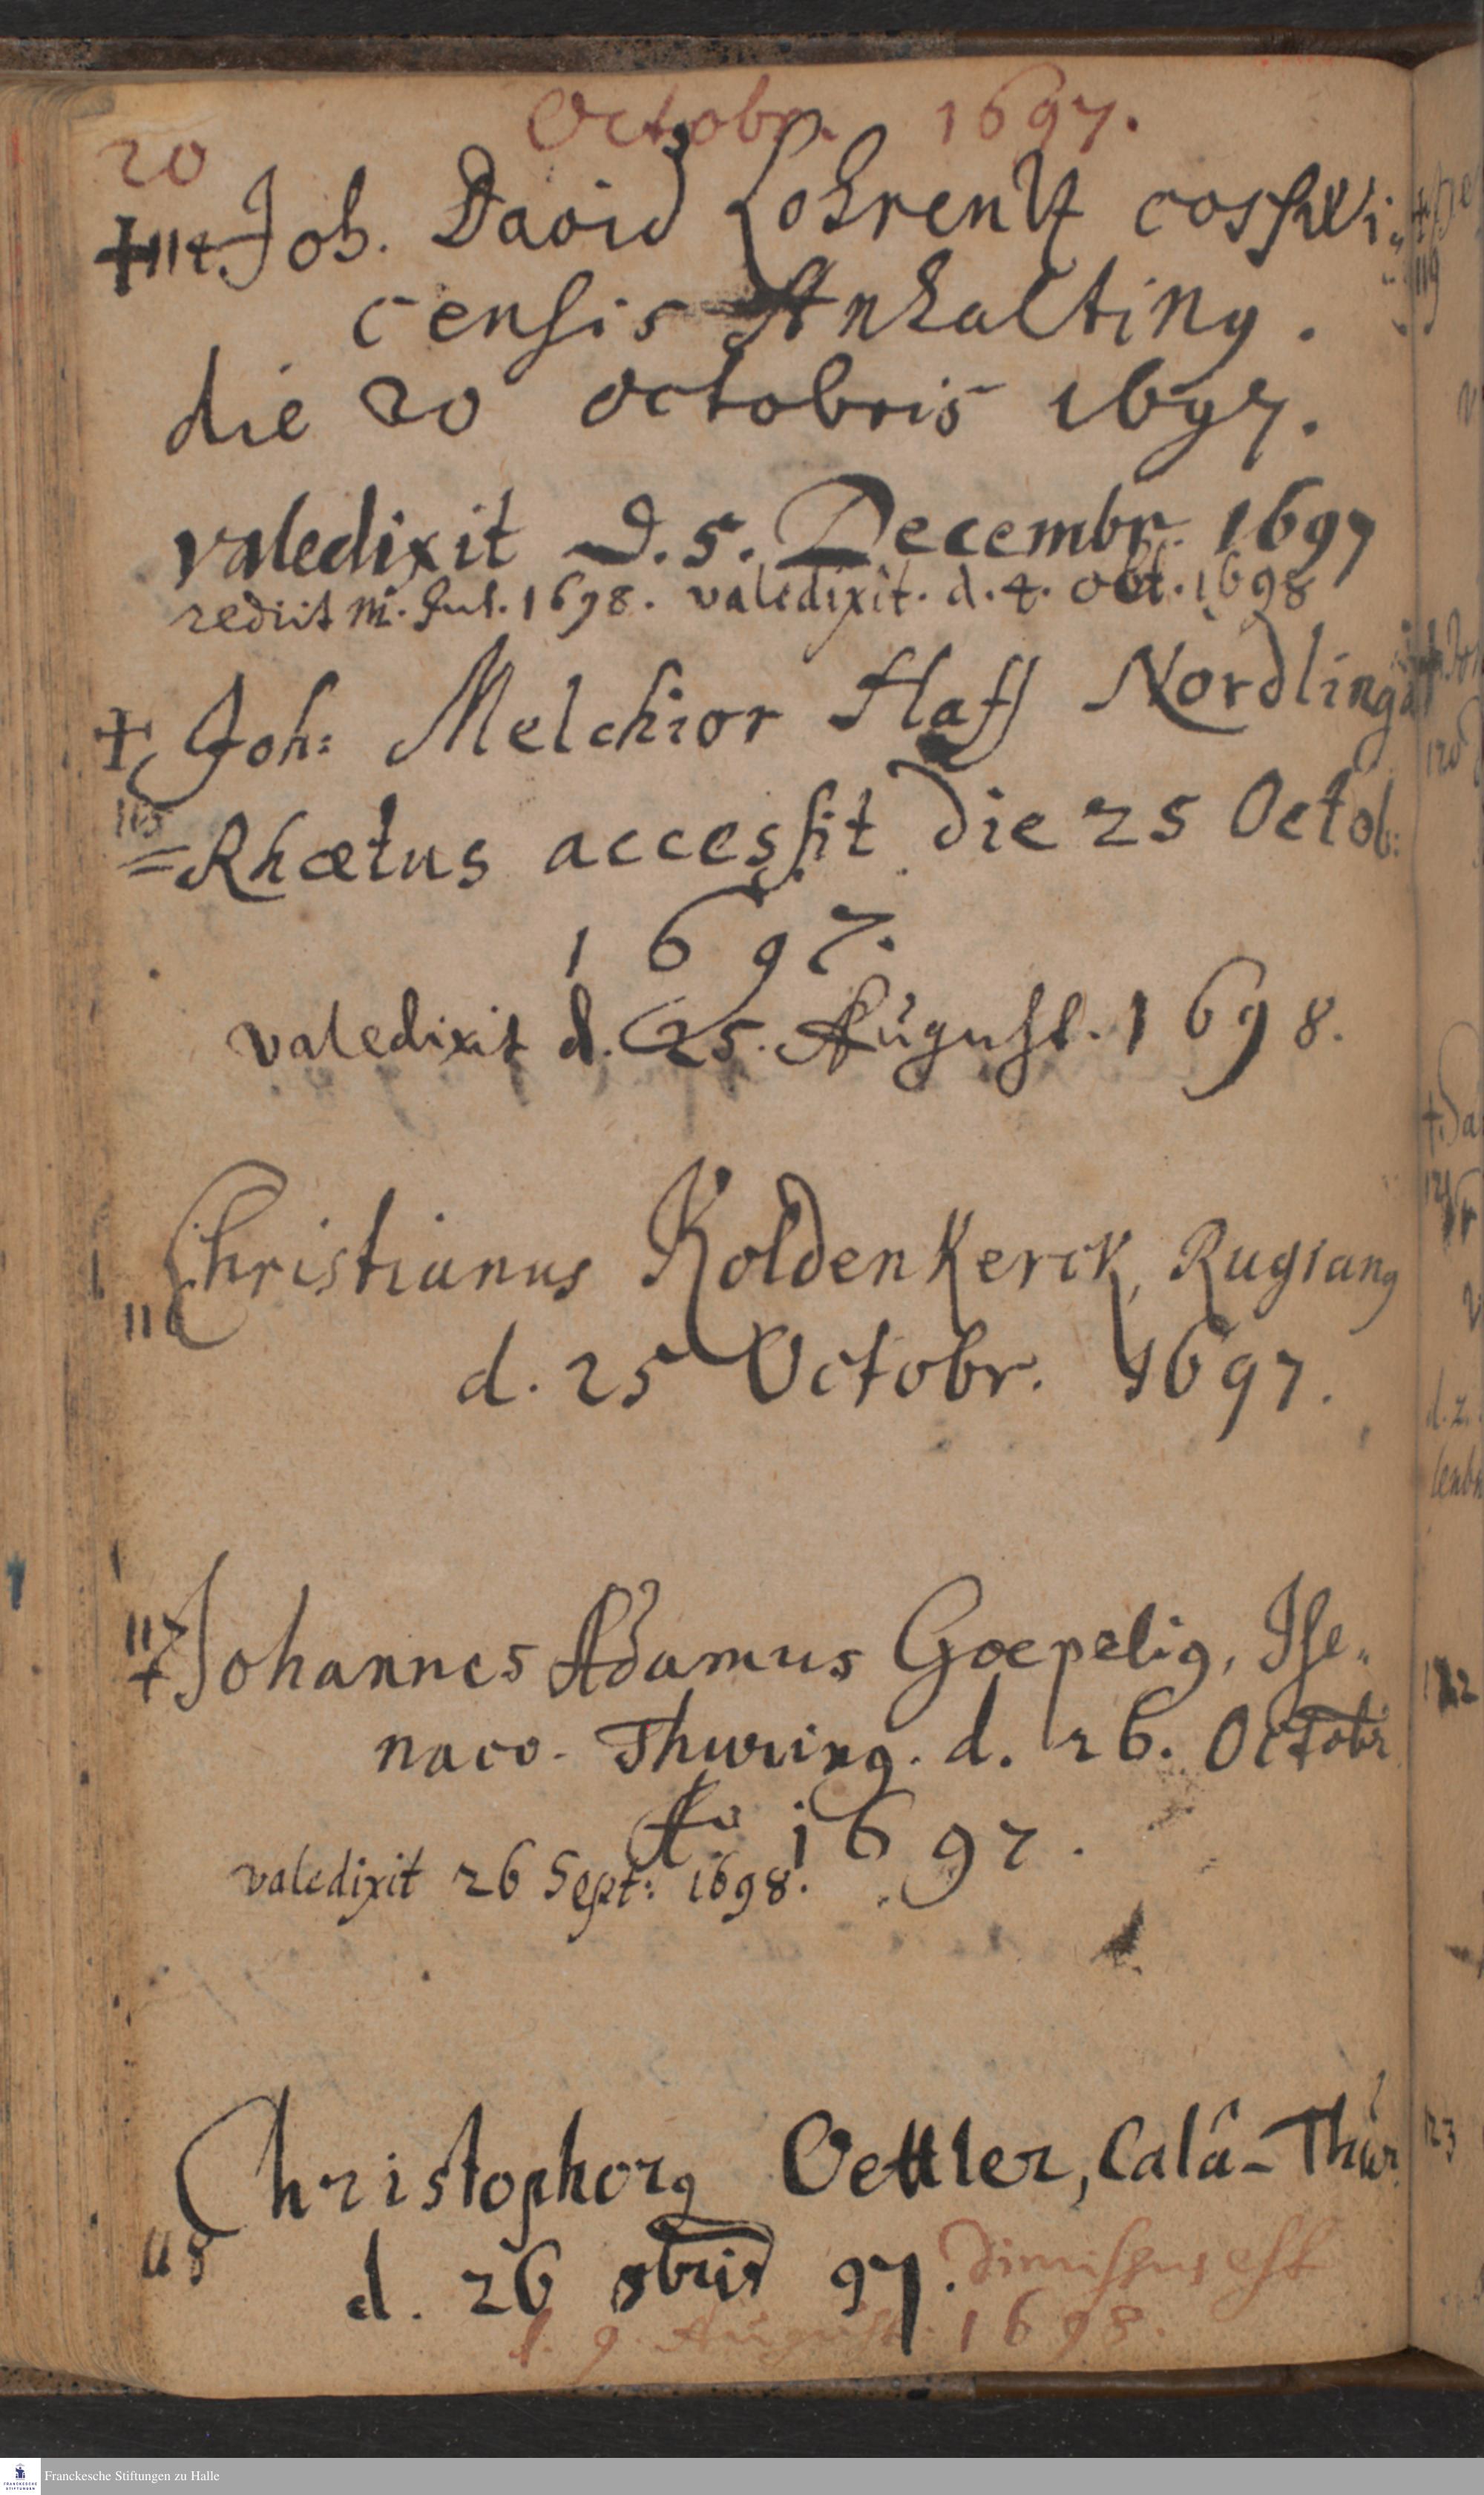 Octobr. 1697.
20
+114. Joh. David Lohrentz cosswi-
censis Anhaltinꝰ.
die 20 octobris 1697.
valedixit d. 5. Decembr. 1697
rediit m. Jul. 1698. valedixit. d. 4. Obt. 1698
+ Joh: Melchior Haff Nordlingâ
115
=Rhætus accessit die 25 Octob:
1697.
valedixit d. 25. August. 1698.
Christianus Koldenkerck, Rugianꝰ
116
d. 25 Octobr. 1697.
117
+ Johannes Adamus Goepelig, Ise-
naco-Thuring. d. 26. Octobr
Ao 1697.
valedixit 26 Sept: 1698.
Christophorꝰ Oettler, Calâ-Thür
118
d. 26 8bris 97. dimissus est
d. 9. August. 1698.
Franckesche Stiftungen zu Halle